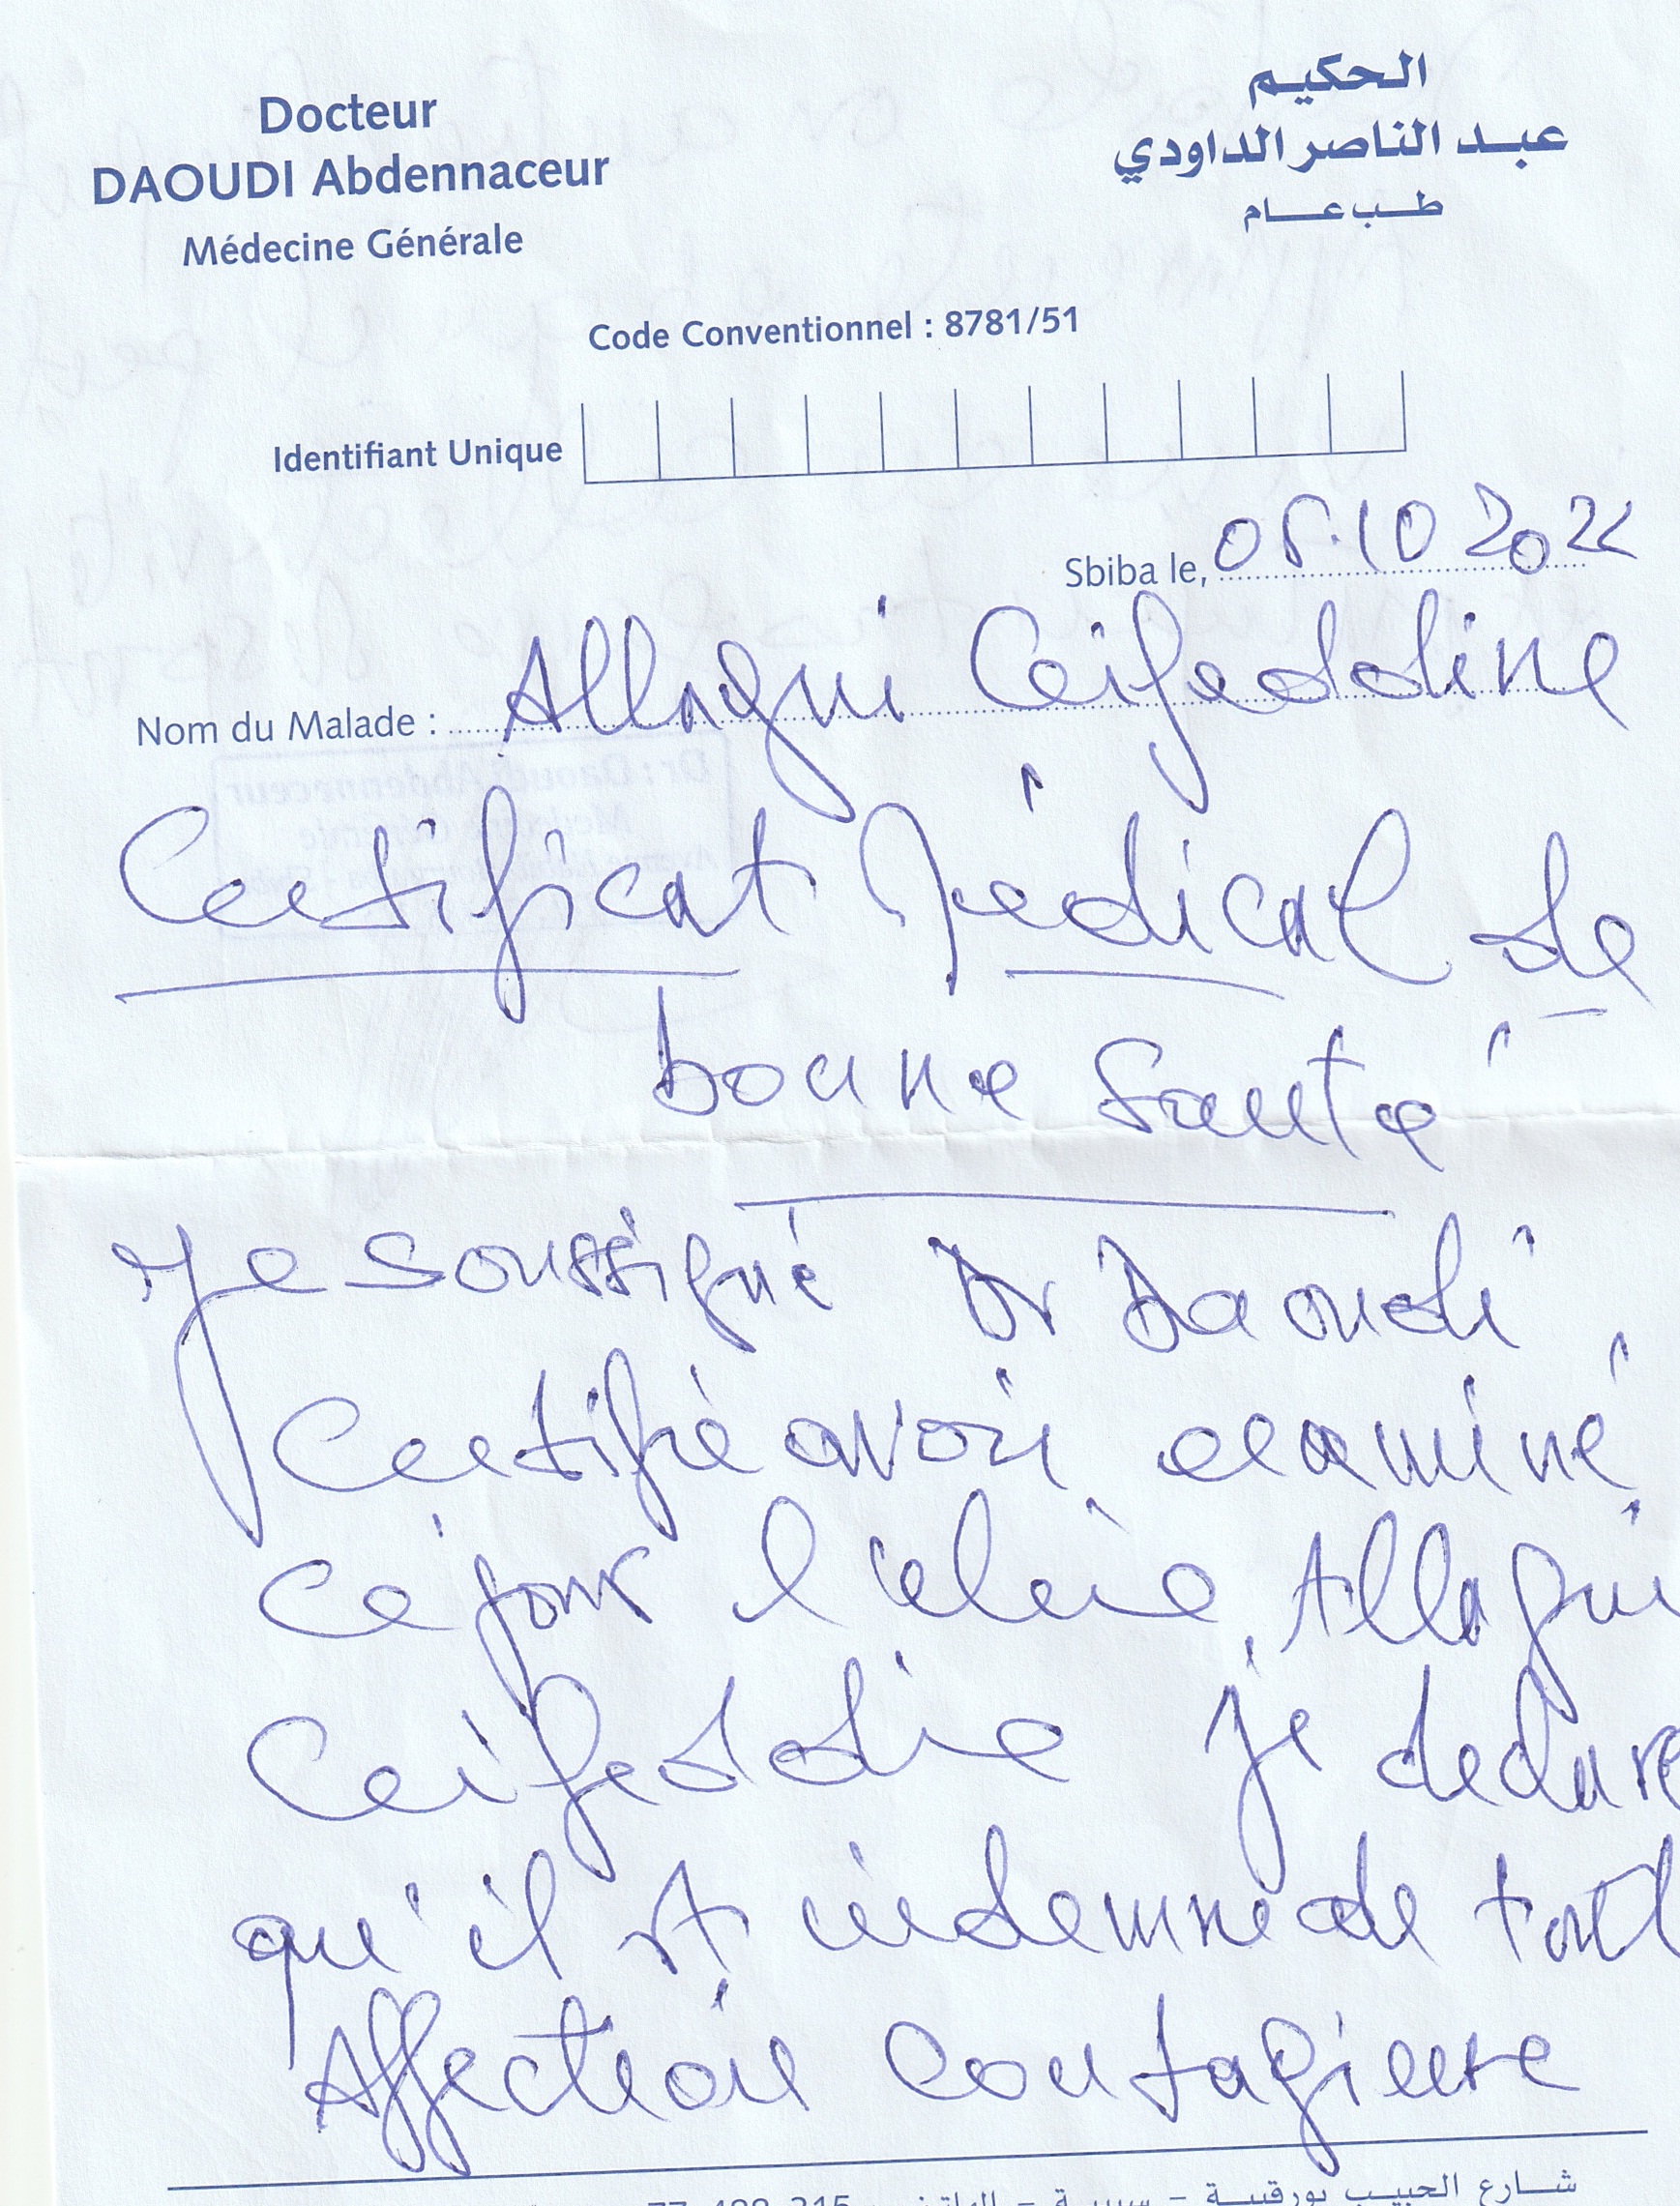 Docteur
DAOUDI Abdennaceur
Médecine Générale
الحكيم
عبد الناصر الداودي
طب عام
Code Conventionnel : 8781/51
Identifiant Unique
Sbiba le, 05.10 2022
Nom du Malade : Allagui Ceifeddine
Certificat Médical de
bonne santé
Je soussigné Dr Daoudi
Certifié avoir examiné
Ce jour l'élève Allagui
Ceifeddine je declare
qu'il est indemne de tout
Affection contagieuse
شارع الحبيب بورقيبة - سبيبة -